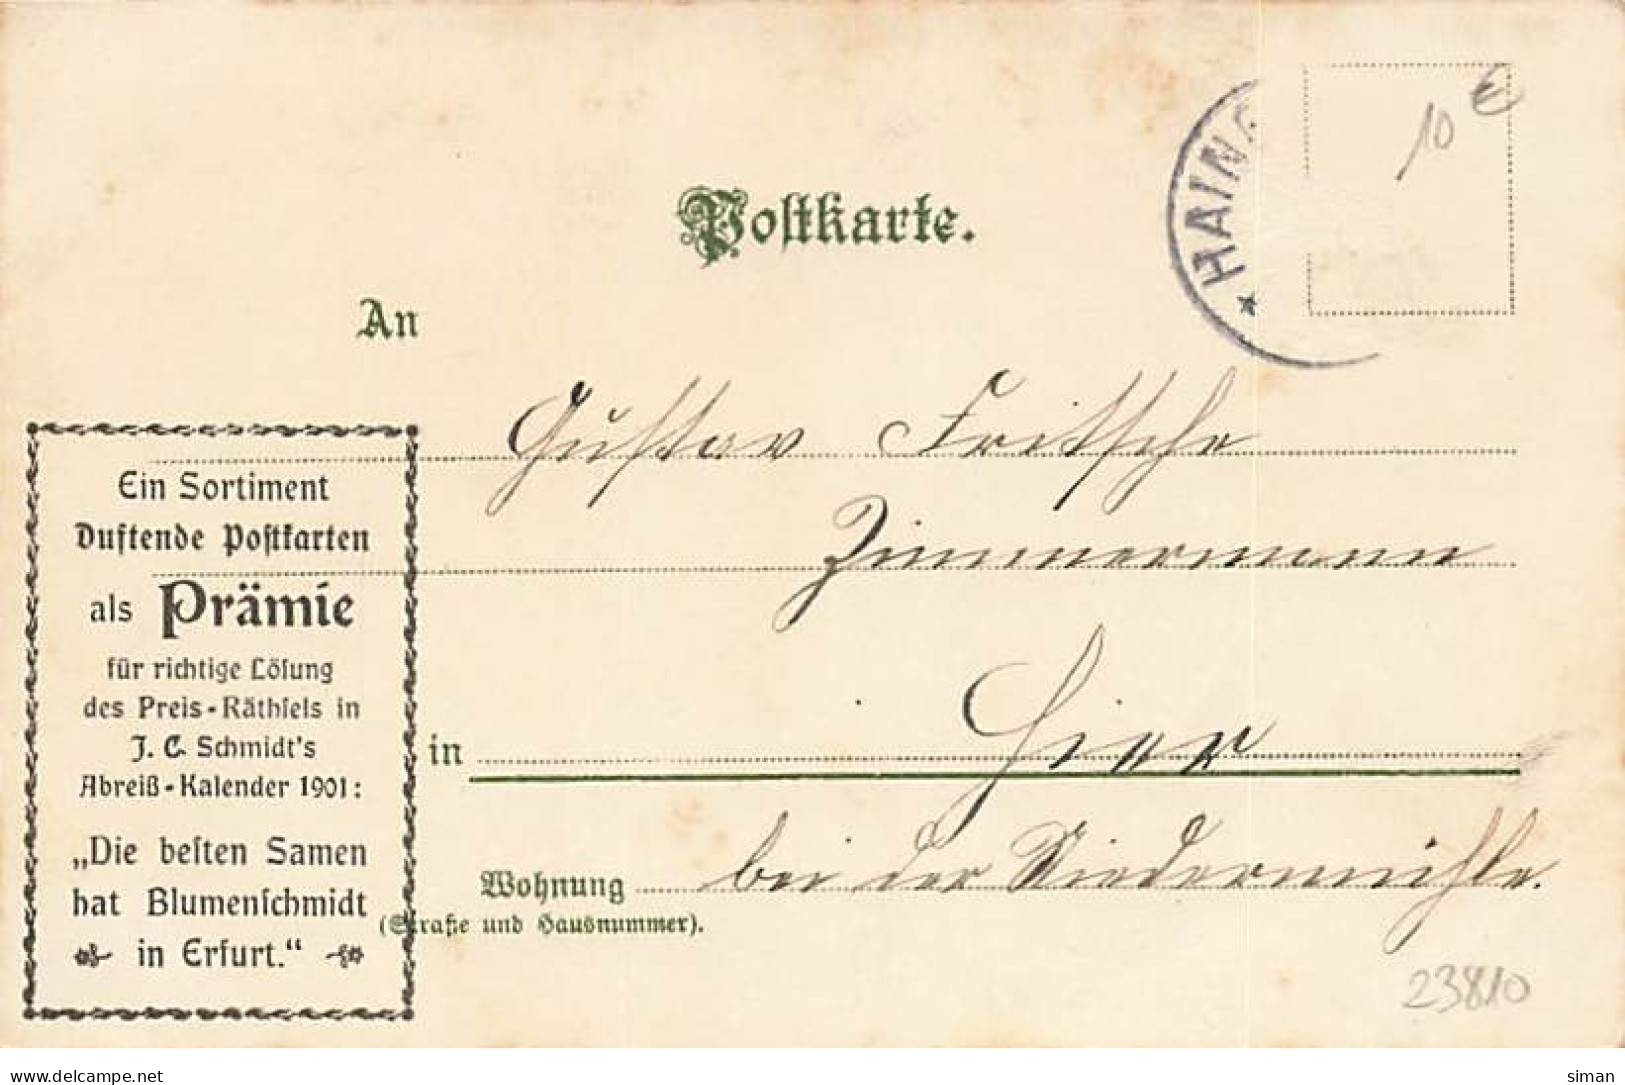 Postkarte.
HAIN
10 €
An
Gustav Fritsche
Zimmermann
in Hier
Wohnung bei der Niedermühle.
(Straße und Hausnummer).
Ein Sortiment
Duftende Postkarten
als Prämie
für richtige Lösung
des Preis-Räthsels in
J. C. Schmidt's
Abreiß-Kalender 1901:
„Die besten Samen
hat Blumenschmidt
in Erfurt.“
23810
delcampe.net
siman